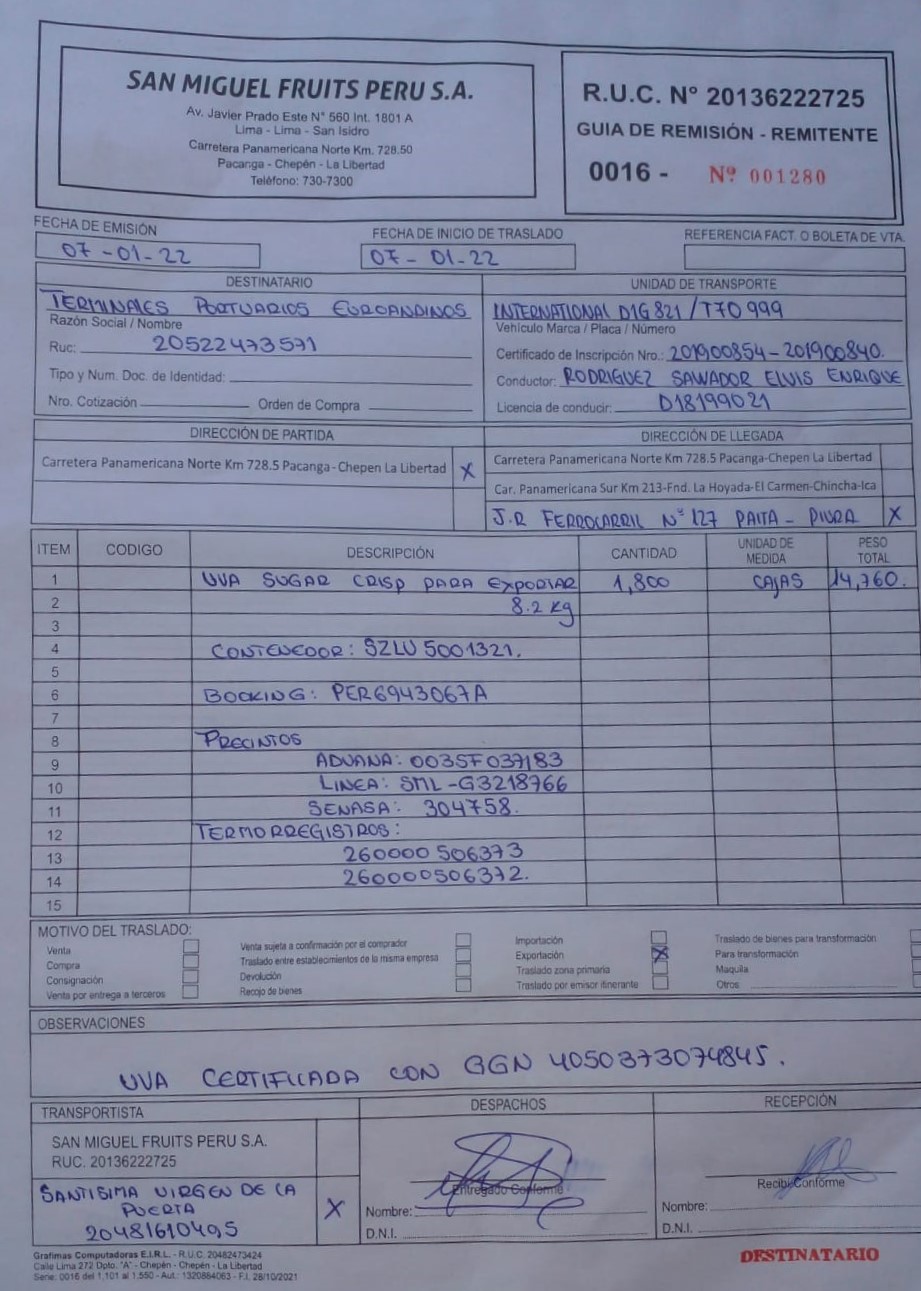 SAN MIGUEL FRUITS PERU S.A.
Av. Javier Prado Este N° 560 Int. 1801 A
Lima - Lima - San Isidro
Carretera Panamericana Norte Km. 728.50
Pacanga - Chepén - La Libertad
Teléfono: 730-7300
R.U.C. N° 20136222725
GUIA DE REMISIÓN - REMITENTE
0016 - Nº 001280
FECHA DE EMISIÓN
07-01-22
FECHA DE INICIO DE TRASLADO
07-01-22
REFERENCIA FACT. O BOLETA DE VTA.
DESTINATARIO
TERMINALES PORTUARIOS EUROANDINOS
Razón Social / Nombre
Ruc: 20522473571
Tipo y Num. Doc. de Identidad:
Nro. Cotización Orden de Compra
UNIDAD DE TRANSPORTE
INTERNATIONAL D1G821/T70999
Vehículo Marca / Placa / Número
Certificado de Inscripción Nro.: 201900854-201900840.
Conductor: RODRIGUEZ SAWADOR ELVIS ENRIQUE
Licencia de conducir: D18199021
DIRECCIÓN DE PARTIDA
Carretera Panamericana Norte Km 728.5 Pacanga-Chepen La Libertad X
DIRECCIÓN DE LLEGADA
Carretera Panamericana Norte Km 728.5 Pacanga-Chepen La Libertad
Car. Panamericana Sur Km 213-Fnd. La Hoyada-El Carmen-Chincha-Ica
J.R FERROCARRIL Nº 127 PAITA - PIURA X
ITEM CODIGO DESCRIPCIÓN CANTIDAD UNIDAD DE MEDIDA PESO TOTAL
1 UVA SUGAR CRISP PARA EXPORTAR 1,800 CAJAS 14,760.
2 8.2 kg
3
4 CONTENEDOR: SZLU 5001321.
5
6 BOOKING: PER6943067A
7
8 PRECINTOS
9 ADUANA: 003SF037183
10 LINEA: SML-G3218766
11 SENASA: 304758.
12 TERMORREGISTROS:
13 260000506373
14 260000506372.
15
MOTIVO DEL TRASLADO:
Venta
Compra
Consignación
Venta por entrega a terceros
Venta sujeta a confirmación por el comprador
Traslado entre establecimientos de la misma empresa
Devolución
Recojo de bienes
Importación
Exportación X
Traslado zona primaria
Traslado por emisor itinerante
Traslado de bienes para transformación
Para transformación
Maquila
Otros
OBSERVACIONES
UVA CERTIFICADA CON GGN 4050373074845.
TRANSPORTISTA
SAN MIGUEL FRUITS PERU S.A.
RUC. 20136222725
SANTISIMA VIRGEN DE LA
PUERTA X
20481610495
DESPACHOS
Entregado Conforme
Nombre:
D.N.I.
RECEPCIÓN
Recibí Conforme
Nombre:
D.N.I.
Grafimas Computadoras E.I.R.L. - R.U.C. 20482473424
Calle Lima 272 Dpto. "A" - Chepén - Chepén - La Libertad
Serie: 0016 del 1,101 al 1,550 - Aut.: 1320884063 - F.I. 28/10/2021
DESTINATARIO